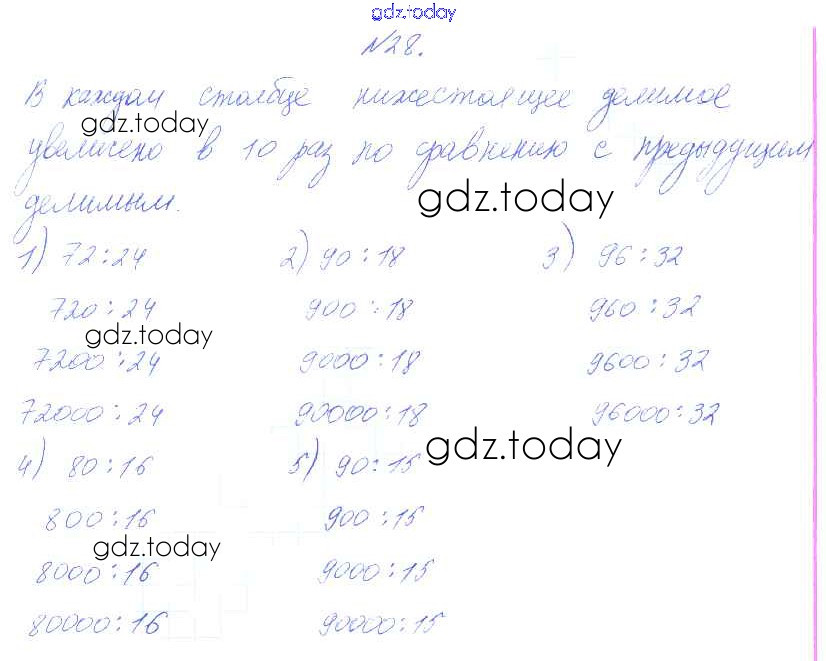 gdz.today
№28.
В каждом столбце нижестоящее делимое
gdz.today
увеличено в 10 раз по сравнению с предыдущим
gdz.today
делимым.
1) 72:24 2) 90:18 3) 96:32
720:24 900:18 960:32
gdz.today
7200:24 9000:18 9600:32
72000:24 90000:18 96000:32
gdz.today
4) 80:16 5) 90:15
800:16 900:15
gdz.today
8000:16 9000:15
80000:16 90000:15